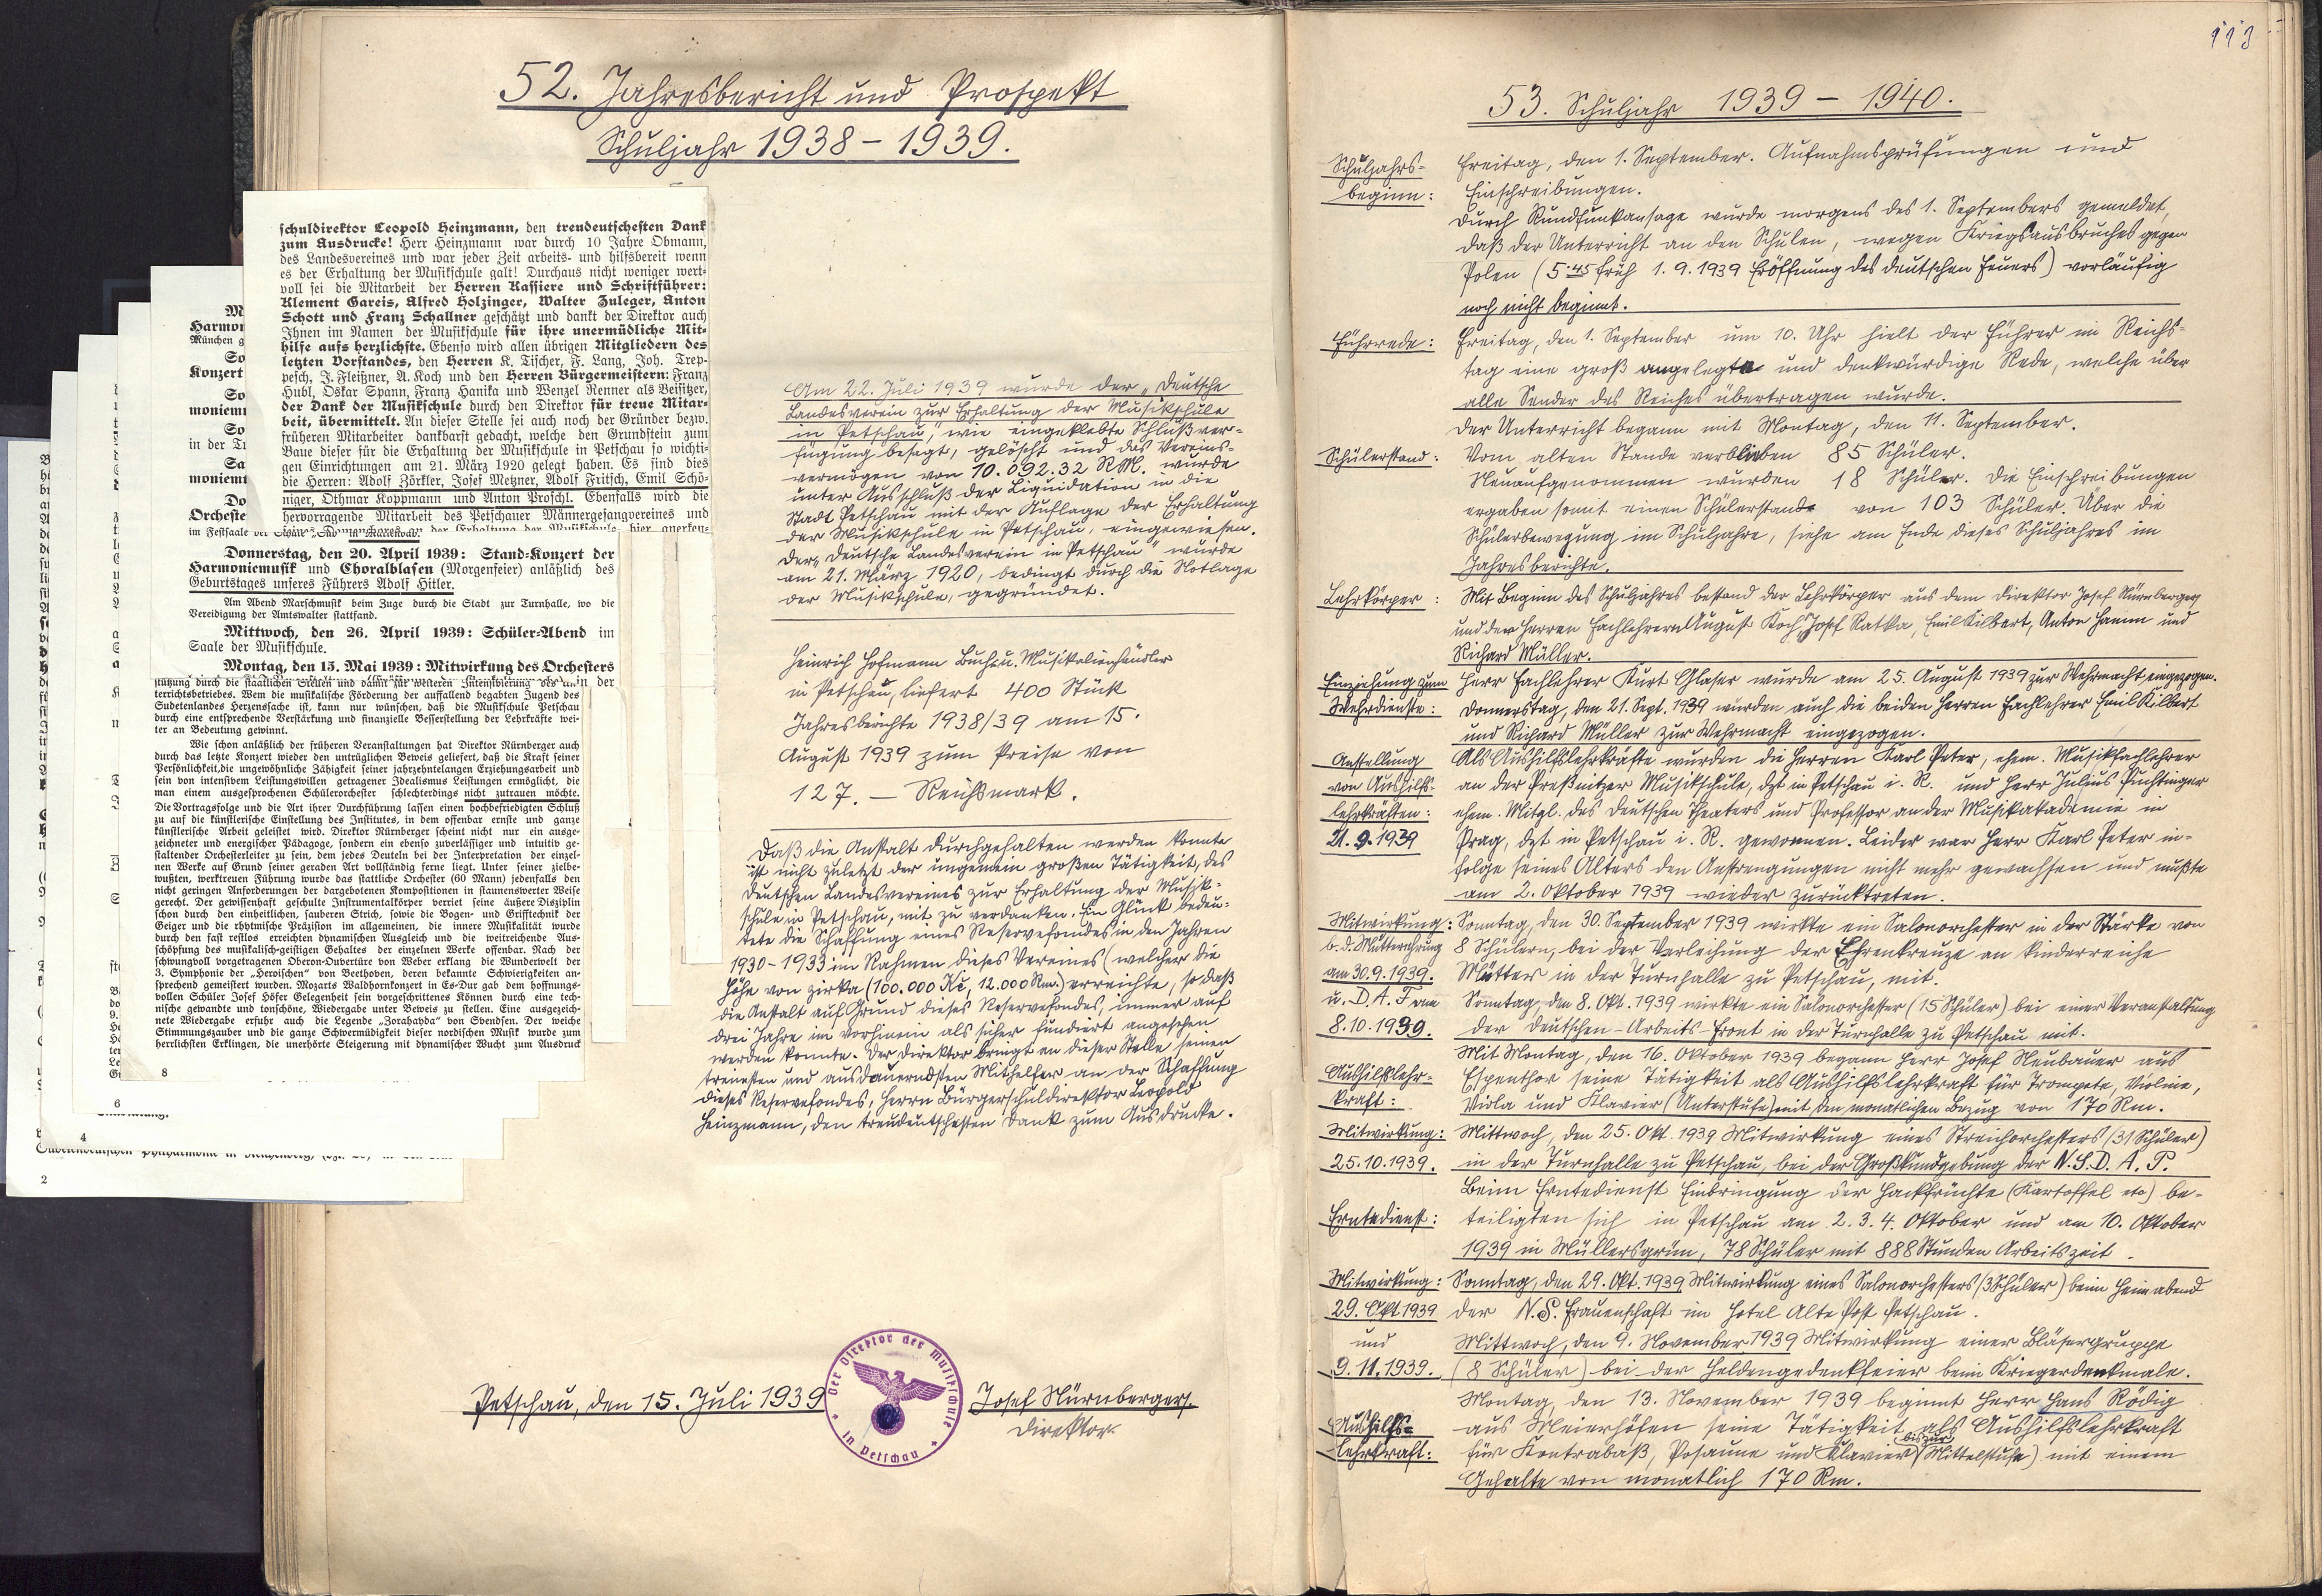 52. Jahresbericht und Prospekt
Schuljahr 1938 – 1939.
schuldirektor Leopold Heinzmann, den treudeutschesten Dank
zum Ausdrucke! Herr Heinzmann war durch 10 Jahre Obmann,
des Landesvereines und war jeder Zeit arbeits- und hilfsbereit wenn
es der Erhaltung der Musikschule galt! Durchaus nicht weniger wert-
voll sei die Mitarbeit der Herren Kassiere und Schriftführer:
Klement Gareis, Alfred Holzinger, Walter Zuleger, Anton
Schott und Franz Schallner geschätzt und dankt der Direktor auch
Ihnen im Namen der Musikschule für ihre unermüdliche Mit-
hilfe aufs herzlichste. Ebenso wird allen übrigen Mitgliedern des
letzten Vorstandes, den Herren K. Tischer, F. Lang, Joh. Trep-
pesch, J. Fleißner, A. Koch und den Herren Bürgermeistern: Franz
Hubl, Oskar Spann, Franz Hanika und Wenzel Renner als Beisitzer,
der Dank der Musikschule durch den Direktor für treue Mitar-
beit, übermittelt. An dieser Stelle sei auch noch der Gründer bezw.
früheren Mitarbeiter dankbarst gedacht, welche den Grundstein zum
Baue dieser für die Erhaltung der Musikschule in Petschau so wichti-
gen Einrichtungen am 21. März 1920 gelegt haben. Es sind dies
die Herren: Adolf Zörkler, Josef Metzner, Adolf Fritsch, Emil Schö-
niger, Othmar Koppmann und Anton Proschl. Ebenfalls wird die
hervorragende Mitarbeit des Petschauer Männergesangvereines und
Harmon
München g
Konzert
monieml
in der Tu
moniemt
Orcheste
im Festsaale
Donnerstag, den 20. April 1939: Stand-Konzert der
Harmoniemusik und Choralblasen (Morgenfeier) anläßlich des
Geburtstages unseres Führers Adolf Hitler.
Am Abend Marschmusik beim Zuge durch die Stadt zur Turnhalle, wo die
Vereidigung der Amtswalter stattfand.
Mittwoch, den 26. April 1939: Schüler-Abend im
Saale der Musikschule.
Montag, den 15. Mai 1939: Mitwirkung des Orchesters
in der
stützung durch die staatlichen Stellen und damit für weiteren Intensivierung des Un-
terrichtsbetriebes. Wem die musikalische Förderung der auffallend begabten Jugend des
Sudetenlandes Herzenssache ist, kann nur wünschen, daß die Musikschule Petschau
durch eine entsprechende Verstärkung und finanzielle Besserstellung der Lehrkräfte wei-
ter an Bedeutung gewinnt.
Wie schon anläßlich der früheren Veranstaltungen hat Direktor Nürnberger auch
durch das letzte Konzert wieder den untrüglichen Beweis geliefert, daß die Kraft seiner
Persönlichkeit, die ungewöhnliche Zähigkeit seiner jahrzehntelangen Erziehungsarbeit und
sein von intensivem Leistungswillen getragener Idealismus Leistungen ermöglicht, die
man einem ausgesprochenen Schülerorchester schlechterdings nicht zutrauen möchte.
Die Vortragsfolge und die Art ihrer Durchführung lassen einen hochbefriedigten Schluß
zu auf die künstlerische Einstellung des Institutes, in dem offenbar ernste und ganze
künstlerische Arbeit geleistet wird. Direktor Nürnberger scheint nicht nur ein ausge-
zeichneter und energischer Pädagoge, sondern ein ebenso zuverlässiger und intuitiv ge-
staltender Orchesterleiter zu sein, dem jedes Deuteln bei der Interpretation der einzel-
nen Werke auf Grund seiner geraden Art vollständig ferne liegt. Unter seiner zielbe-
wußten, werktreuen Führung wurde das stattliche Orchester (60 Mann) jedenfalls den
nicht geringen Anforderungen der dargebotenen Kompositionen in staunenswerter Weise
gerecht. Der gewissenhaft geschulte Instrumentalkörper verriet seine äußere Disziplin
schon durch den einheitlichen, sauberen Strich, sowie die Bogen- und Grifftechnik der
Geiger und die rhytmische Präzision im allgemeinen, die innere Musikalität wurde
durch den fast restlos erreichten dynamischen Ausgleich und die weitreichende Aus-
schöpfung des musikalisch-geistigen Gehaltes der einzelnen Werke offenbar. Nach der
schwungvoll vorgetragenen Oberon-Ouvertüre von Weber erklang die Wunderwelt der
3. Symphonie der „Heroischen" von Beethoven, deren bekannte Schwierigkeiten an-
sprechend gemeistert wurden. Mozarts Waldhornkonzert in Es-Dur gab dem hoffnungs-
vollen Schüler Josef Höfer Gelegenheit sein vorgeschrittenes Können durch eine tech-
nische gewandte und tonschöne, Wiedergabe unter Beweis zu stellen. Eine ausgezeich-
nete Wiedergabe erfuhr auch die Legende „Zorahayda" von Svendsen. Der weiche
Stimmungszauber und die ganze Schwermütigkeit dieser nordischen Musik wurde zum
herrlichsten Erklingen, die unerhörte Steigerung mit dynamischer Wucht zum Ausdruck
8
6
4
2
Am 22. Juli 1939 wurde der „Deutsche
Landesverein zur Erhaltung der Musikschule
in Petschau", wie eingeklebte Schlußver-
fügung besagt, gelöscht und das Vereins-
vermögen von 10.092.32 RM. wurde
unter Ausschluß der Liquidation in die
Stadt Petschau mit der Auflage der Erhaltung
der Musikschule in Petschau, eingewiesen.
Der „Deutsche Landesverein in Petschau" wurde
am 21. März 1920, bedingt durch die Notlage
der Musikschule, gegründet.
Heinrich Hofmann Buch- u. Musikalienhändler
in Petschau, liefert 400 Stück
Jahresberichte 1938/39 am 15.
August 1939 zum Preise von
127.— Reichsmark.
Daß die Anstalt durchgehalten werden konnte
ist nicht zuletzt der ungemein großen Tätigkeit, des
Deutschen Landesvereines zur Erhaltung der Musik-
schule in Petschau, mit zu verdanken. Ein Glück bedeu-
tete die Schaffung eines Reservefondes in den Jahren
1930-1933 im Rahmen dieses Vereines (welcher die
Höhe von zirka (100.000 Kč, 12.000 Rm.) erreichte, so daß
die Anstalt auf Grund dieses Reservefondes, immer auf
drei Jahre im vorhinein als sicher fundiert angesehen
werden konnte. Der Direktor bringt an dieser Stelle seinen
treuesten und ausdauerndsten Mithelfer an der Schaffung
dieses Reservefondes, Herrn Bürgerschuldirektor Leopold
Heinzmann, den treudeutschesten Dank zum Ausdrucke.
Petschau, den 15. Juli 1939
Der Direktor der Musikschule
in Petschau
Josef Nürnberger.
Direktor.
113
53. Schuljahr 1939 – 1940.
Schuljahrs-
beginn:
Freitag, den 1. September. Aufnahmsprüfungen und
Einschreibungen.
Durch Rundfunkansage wurde morgens des 1. Septembers gemeldet,
daß der Unterricht an den Schulen, wegen Kriegsausbruches gegen
Polen (5.45 früh 1.9.1939 Eröffnung des deutschen Feuers) vorläufig
noch nicht beginnt.
Führrede:
Freitag, den 1. September um 10. Uhr hielt der Führer im Reichs-
tag eine groß angelegte und denkwürdige Rede, welche über
alle Sender des Reiches übertragen wurde.
Der Unterricht begann mit Montag, den 11. September.
Schülerstand:
Vom alten Stande verblieben 85 Schüler.
Neuaufgenommen wurden 18 Schüler. Die Einschreibungen
ergaben somit einen Schülerstand von 103 Schüler. Über die
Schülerbewegung im Schuljahre, siehe am Ende dieses Schuljahres im
Jahresberichte.
Lehrkörper:
Mit Beginn des Schuljahres bestand der Lehrkörper aus dem Direktor Josef Nürnberger
und den Herren Fachlehrern August Koch, Josef Ratka, Emil Kilbert, Anton Hamm und
Richard Müller.
Einziehung zum
Wehrdienste:
Herr Fachlehrer Kurt Glaser wurde am 25. August 1939 zur Wehrmacht eingezogen.
Donnerstag, den 21. Sept. 1939 wurden auch die beiden Herren Fachlehrer Emil Kilbert
und Richard Müller zur Wehrmacht eingezogen.
Anstellung
von Aushilfs-
lehrkräften:
21.9.1939
Als Aushilfslehrkräfte wurden die Herren Karl Peter, ehem. Musikfachlehrer
an der Preßnitzer Musikschule, dzt in Petschau i. R. und Herr Julius Puchtinger
ehem. Mitgl. des Deutschen Theaters und Professor an der Musikakademie in
Prag, dzt in Petschau i. R. gewonnen. Leider war Herr Karl Peter in-
folge seines Alters den Anstrengungen nicht mehr gewachsen und mußte
am 2. Oktober 1939 wieder zurücktreten.
Mitwirkung:
b. d. Mutterehrung
am 30.9.1939.
u. D. A. F am
8.10.1939.
Sonntag, den 30. September 1939 wirkte ein Salonorchester in der Stärke von
8 Schülern, bei der Verleihung der Ehrenkreuze an kinderreiche
Mütter in der Turnhalle zu Petschau, mit.
Sonntag, den 8. Okt. 1939 wirkte ein Salonorchester (15 Schüler) bei einer Veranstaltung
der Deutschen-Arbeits-Front in der Turnhalle zu Petschau mit.
Aushilfslehr-
kraft:
Mit Montag, den 16. Oktober 1939 begann Herr Josef Neubauer aus
Espenthor seine Tätigkeit als Aushilfslehrkraft für Trompete, Violine,
Viola und Klavier (Unterstufe) mit den monatlichen Bezug von 170 Rm.
Mitwirkung:
25.10.1939.
Mittwoch, den 25. Okt. 1939 Mitwirkung eines Streichorchesters (31 Schüler)
in der Turnhalle zu Petschau, bei der Großkundgebung der N.S.D.A.P.
Erntedienst:
Beim Erntedienst Einbringung der Hackfrüchte (Kartoffel etc) be-
teiligten sich in Petschau am 2. 3. 4. Oktober und am 10. Oktober
1939 in Müllersgrün, 78 Schüler mit 888 Stunden Arbeitszeit.
Mitwirkung:
29. Okt 1939
und
9.11.1939.
Sonntag, den 29. Okt. 1939 Mitwirkung eines Salonorchesters (3 Schüler) beim Heimabend
der N.S. Frauenschaft im Hotel Alte Post Petschau.
Mittwoch, den 9. November 1939 Mitwirkung einer Bläsergruppe
(8 Schüler) bei der Heldengedenkfeier beim Kriegerdenkmale.
Aushilfs-
lehrkraft:
Montag, den 13. November 1939 beginnt Herr Hans Rödig
aus Meierhöfen seine Tätigkeit als Aushilfslehrkraft
für Kontrabaß, Posaune und Klavier (bis zur Mittelstufe) mit einem
Gehalte von monatlich 170 Rm.